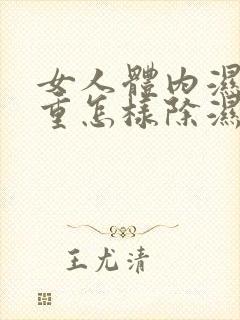 女人體內濕
重怎樣除濕
王尤清